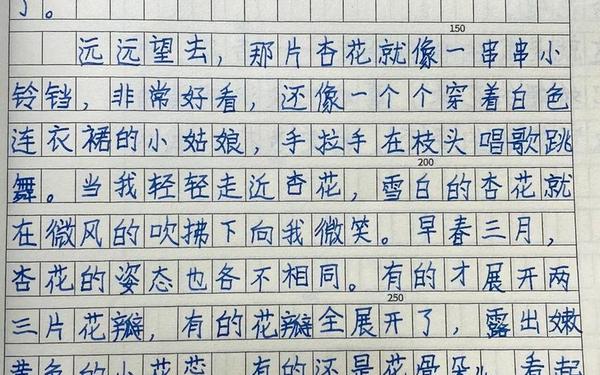 了。
150
远远望去，那片杏花就像一串串小
铃铛，非常好看，还像一个个穿着白色
连衣裙的小姑娘，手拉手在枝头唱歌跳
200
舞。当我轻轻走近杏花，雪白的杏花就
在微风的吹拂下向我微笑。早春三月，
杏花的姿态也各不相同。有的才展开两
250
三片花瓣，有的花瓣全展开了，露出嫩
黄色的小花蕊，有的还是花骨朵儿，看起